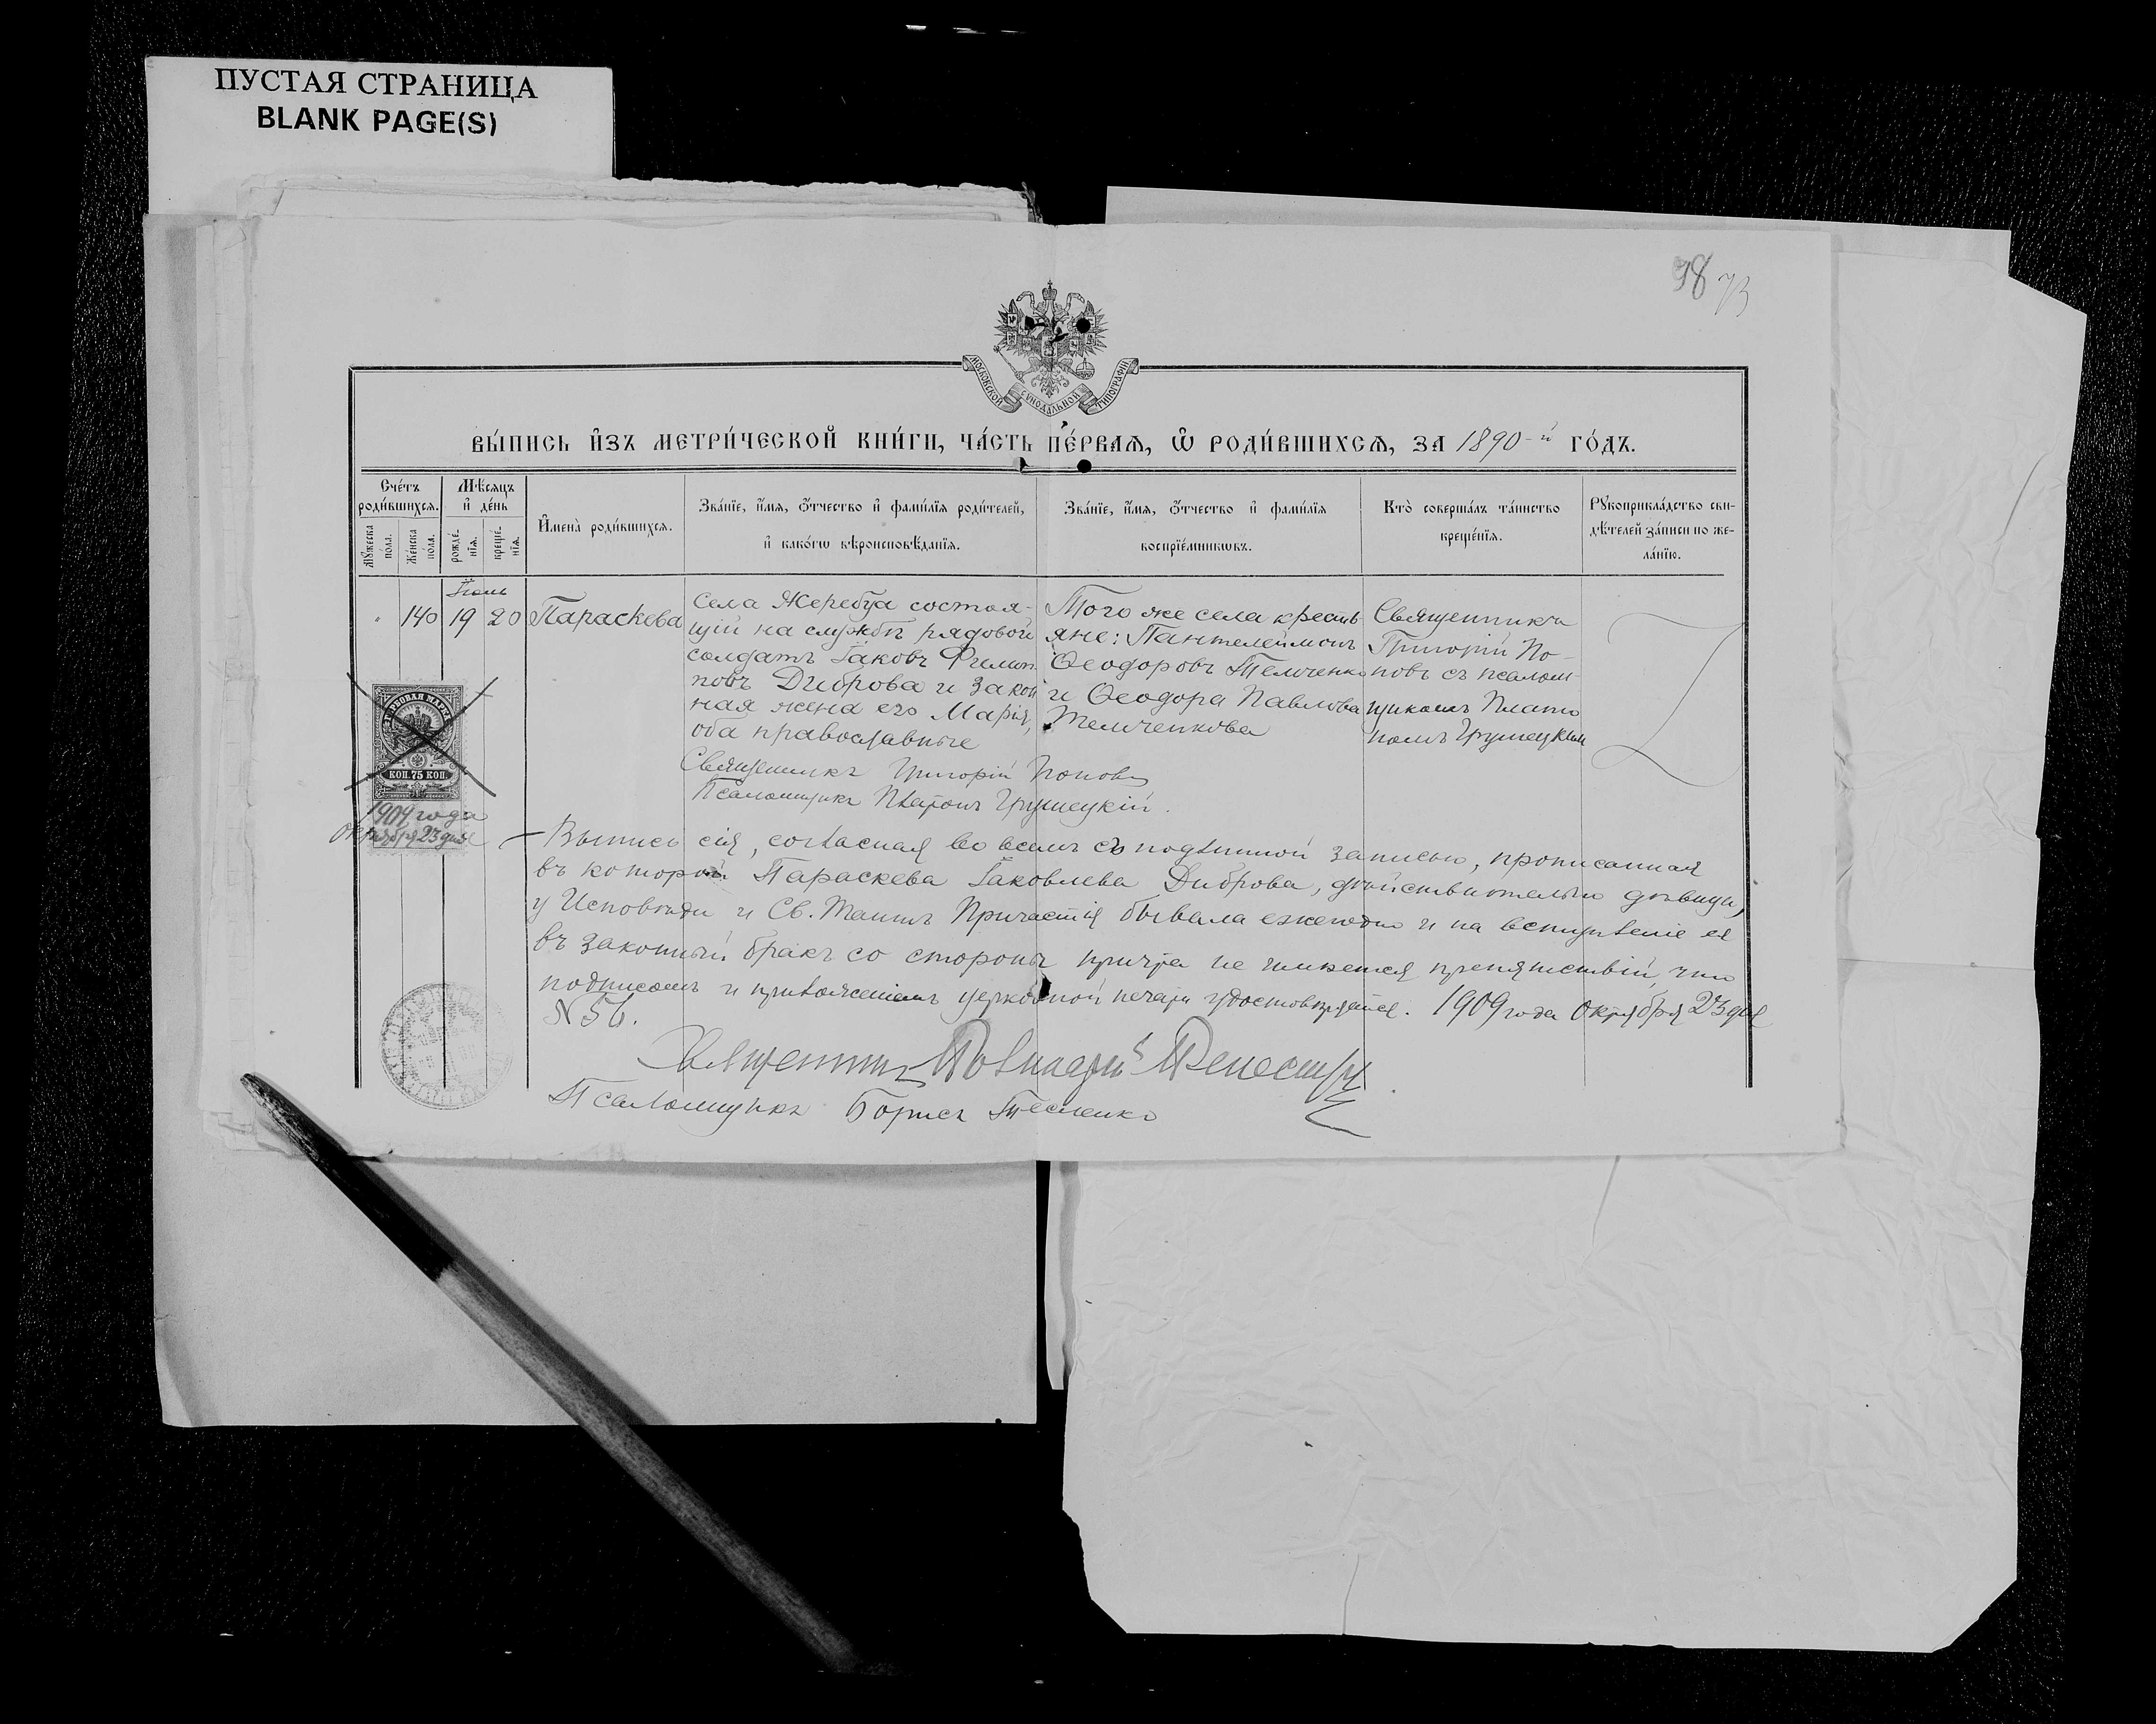 ПУСТАЯ СТРАНИЦА
BLANK PAGE(S)
98 73
МОСКОВСКОЙ СУНОДАЛЬНОЙ ТИПОГРАФІИ
ВЫ́ПИСЬ И҆ЗЪ МЕТРИ́ЧЕСКОЙ КНИ́ГИ, ЧА́СТЬ ПЕ́РВАѦ, Ѡ҆ РОДИ́ВШИХСѦ, ЗА 1890-й ГО́ДЪ.
Сче́тъ роди́вшихсѧ.
Мꙋ́жеска по́ла.
Же́нска по́ла.
Мѣ́сѧцъ и҆ де́нь
рожде́нїѧ.
креще́нїѧ.
И҆мена̀ роди́вшихсѧ.
Зва́нїе, и҆́мѧ, ѻ҆́тчество и҆ фами́лїѧ роди́телей,
и҆ како́гѡ вѣроисповѣ́данїѧ.
Зва́нїе, и҆́мѧ, ѻ҆́тчество и҆ фами́лїѧ
воспрїе́мникѡвъ.
Кто̀ соверша́лъ та́инство
креще́нїѧ.
Рꙋкоприкла́дство сви-
дѣ́телей за́писи по же-
ла́нїю.
" 140 19 20
Параскева
Села Жеребца состоя-
щій на службѣ рядовой
солдатъ Іаковъ Филип-
повъ Диброва и закон
ная жена его Марія,
оба православные
Того же села кресть
яне: Пантелеймонъ
Ѳеодоровъ Телченко
и Ѳеодора Павлова
Телченкова
Священникъ
Григорій По-
повъ съ псалом-
щикомъ Плато
номъ Грушецким
Священникъ Григорій Поповъ
Псаломщикъ Платонъ Грушецкій.
ГЕРБОВАЯ МАРКА
КОП. 75 КОП.
1909 года
Октября 23 дня
Выпись сія, согласная во всемъ съ подлинной записью, прописанная
въ которой Параскева Іаковлева Диброва, дѣйствительно дѣвица,
у Исповѣди и Св. Таинъ Причастія бывала ежегодно и на вступленіе ея
въ законный бракъ со стороны причта не имѣется препятствій, что
подписомъ и приложеніемъ церковной печати удостовѣряется. 1909 года Октября 23 дня
N 56.
Священникъ
Псаломщикъ Борисъ Тесленко